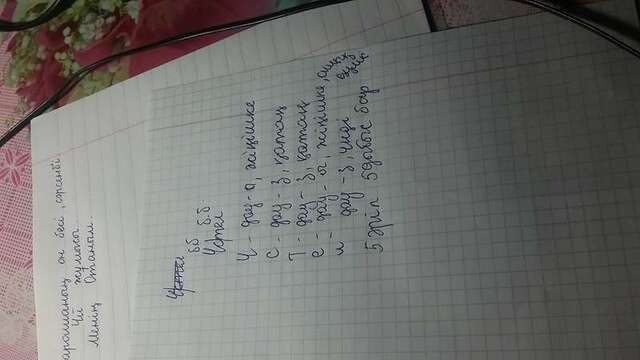 арашаның он бесі, сәрсенбі.
Үй жұмысы.
Менің Отаным.
Үстел
бб б.б.
Үстел
Ү - дау-ы, жіңішке
С - дау-з, қатаң
Т - дау-з, қатаң
е - дау-ы, жіңішке, ашық
л дау-з, үнді
5 әріп 5 дыбыс бар